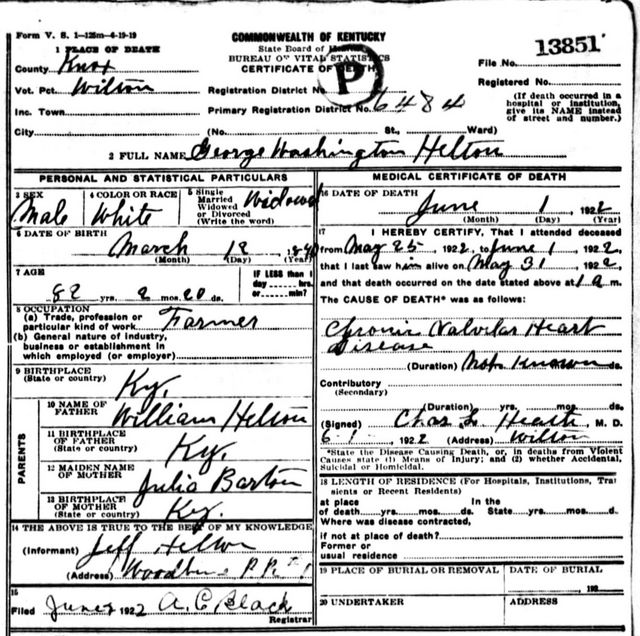 Form V. S. 1—125m—6-19-19
COMMONWEALTH OF KENTUCKY
State Board of Health
BUREAU OF VITAL STATISTICS
CERTIFICATE OF DEATH
P
File No. 13851
Registered No.
(If death occurred in a hospital or institution, give its NAME instead of street and number.)
1 PLACE OF DEATH
County Knox
Vot. Pct. Wilton
Inc. Town
City (No. St., Ward)
Registration District No.
Primary Registration District No. 6484
2 FULL NAME George Washington Helton
PERSONAL AND STATISTICAL PARTICULARS
3 SEX Male
4 COLOR OR RACE White
5 Single Married Widowed or Divorced (Write the word) Widowed
6 DATE OF BIRTH
March 12, 1840
(Month) (Day) (Year)
7 AGE
82 yrs. 2 mos. 20 ds.
IF LESS than 1 day hrs. or min?
8 OCCUPATION
(a) Trade, profession or particular kind of work Farmer
(b) General nature of industry, business or establishment in which employed (or employer)
9 BIRTHPLACE
(State or country) Ky.
PARENTS
10 NAME OF FATHER William Helton
11 BIRTHPLACE OF FATHER (State or country) Ky.
12 MAIDEN NAME OF MOTHER Julia Barton
13 BIRTHPLACE OF MOTHER (State or country) Ky.
14 THE ABOVE IS TRUE TO THE BEST OF MY KNOWLEDGE
(Informant) Jeff Helton
(Address) Woodbine
15
Filed June 2 1922 A. C. Black
Registrar
MEDICAL CERTIFICATE OF DEATH
16 DATE OF DEATH
June 1, 1922
(Month) (Day) (Year)
17 I HEREBY CERTIFY, That I attended deceased
from May 25, 1922, to June 1, 1922,
that I last saw him alive on May 31, 1922,
and that death occurred on the date stated above at 1 a m.
The CAUSE OF DEATH* was as follows:
Chronic Valvular Heart
Disease
(Duration) Not Known ds.
Contributory
(Secondary)
(Duration) yrs. mos. ds.
(Signed) Chas. L. Heath, M. D.
6-1, 1922 (Address) Wilton
*State the Disease Causing Death, or, in deaths from Violent
Causes state (1) Means of Injury; and (2) whether Accidental,
Suicidal or Homicidal.
18 LENGTH OF RESIDENCE (For Hospitals, Institutions, Tra
sients or Recent Residents)
at place In the
of death yrs. mos. ds. State yrs. mos. d.
Where was disease contracted,
if not at place of death?
Former or
usual residence
19 PLACE OF BURIAL OR REMOVAL DATE OF BURIAL
192
20 UNDERTAKER ADDRESS